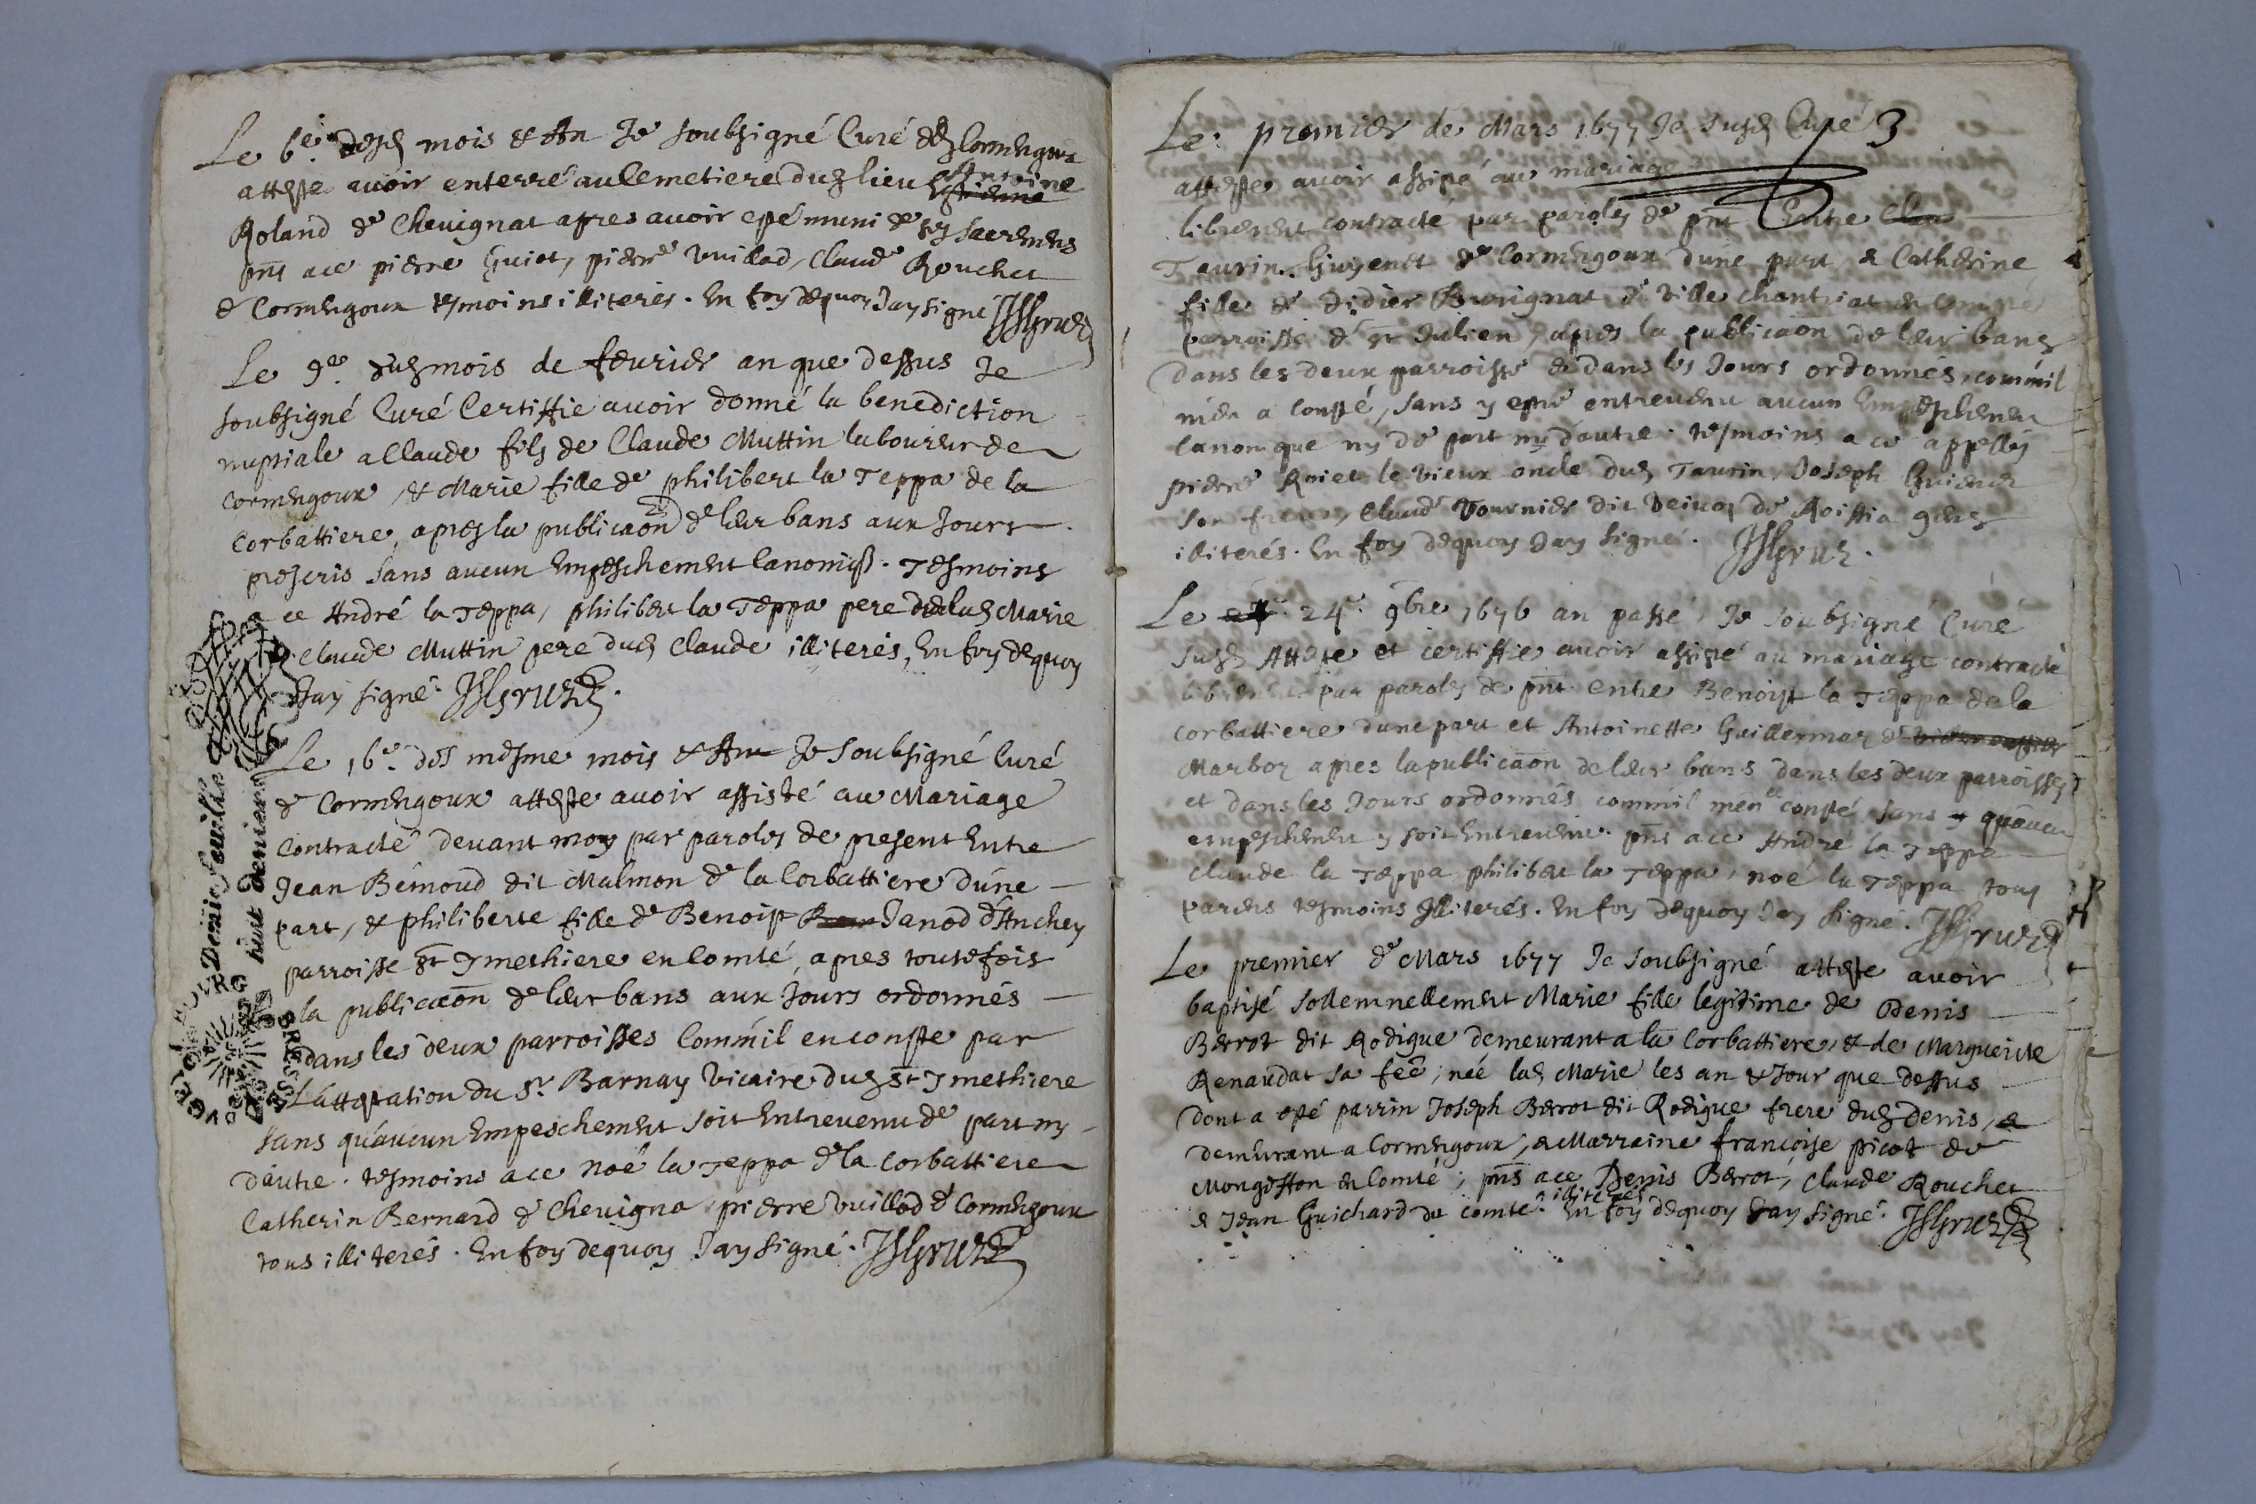 Le 6e. desd mois & An Je soubsigné Curé de Cormengoux
atteste avoir enterré au Cemetiere dud lieu Antoine
Roland de Chevignat apres avoir esté muni de ses sacremens
pnts a ce pierre Guiot, pierre Vuillod, Claude Rouchet
de Cormengoux tesmoins illiterés. En foy dequoy J'ay signé
Le 9e. dud mois de fevrier an que dessus Je
soubsigné Curé Certiffie avoir donné la benediction
nuptiale a Claude fils de Claude Muttin laboureur de
Cormengoux, & Marie fille de philibert la Teppa de la
Corbattiere, apres la publicaon de leur bans aux Jours
prescris sans aucun Empeschement Canoniq. Tesmoins
a ce André la Teppa, philibert la Teppa pere de lad Marie
Claude Muttin pere dud Claude illiterés, En foy dequoy
J'ay signé.
Le 16e. des mesme mois & An Je Soubsigné Curé
de Cormengoux atteste avoir assisté au Mariage
Contracté devant moy par paroles de present Entre
Jean Bémoud dit Malmon de la Corbattiere d'une
part, & philiberte fille de Benoist Janod d'Anchey
parroisse St Ymethiere en Comté, apres toutefois
la publicaon de leur bans aux Jours ordonnés
dans les deux parroisses Comm'il en conste par
L'attestation du Sr. Barnay Vicaire dud St Ymethiere
sans qu'aucun Empeschement soit Entrevenu de part ny
d'autre. tesmoins a ce noé la Teppa de la Corbattiere
Catherin Bernard de Chevigna pierre Vuillod de Cormengoux
tous illiterés. En foy dequoy J'ay signé.
Denie feuille
huit deniers
BOURG
BRESSE
Le premier de Mars 1677 Je susd Curé 3
atteste avoir assisté au mariage
librement contracté par paroles de pnt Entre
Taurin Guyenet de Cormengoux d'une part & Catherine
fille de Didier Buvignat de Ville chantriat en Comté
parroisse de St Julien, apres la publicaon de leur bans
dans les deux parroisses & dans les Jours ordonnés, comm'il
m'en a consté, sans y estre entrevenu aucun Empeschement
Canonique ny de part ny d'autre. tesmoins a ce appellés
pierre Roiet le vieux oncle dud Taurin, Joseph Guienet
son frere, Claude Vournier dit de Roissia
illiterés. En foy dequoy J'ay signé.
Le 24e. 9bre 1676 an passé, Je soubsigné Curé
susd Atteste et certiffie avoir assisté au mariage contracté
librement par paroles de pnt entre Benoist la Teppa de la
Corbattiere d'une part et Antoinette Guillermaz de
Marboz apres la publicaon de leur bans dans les deux parroisses
et dans les Jours ordonnés comm'il m'en consté sans qu'aucun
empeschement y soit Entrevenu. pnts a ce André la Teppa
Claude la Teppa philibert la Teppa, noé la Teppa tous
parens tesmoins Illiterés. En foy dequoy J'ay signé.
Le premier de Mars 1677 Je Soubsigné atteste avoir
baptisé sollemnellement Marie fille legitime de Denis
Berrot dit Rodigue demeurant a la Corbattiere, & de Marguerite
Renaudat sa fee, née lad Marie les an & Jour que dessus
dont a esté parrin Joseph Berrot dit Rodigue frere dud Denis, &
demeurant a Cormengoux, & Marraine françoise picot de
Mongefton en Comté; pnts a ce Denis Berrot, Claude Rouchet
& Jean Guichard du comté illiterés. En foy dequoy J'ay signé.